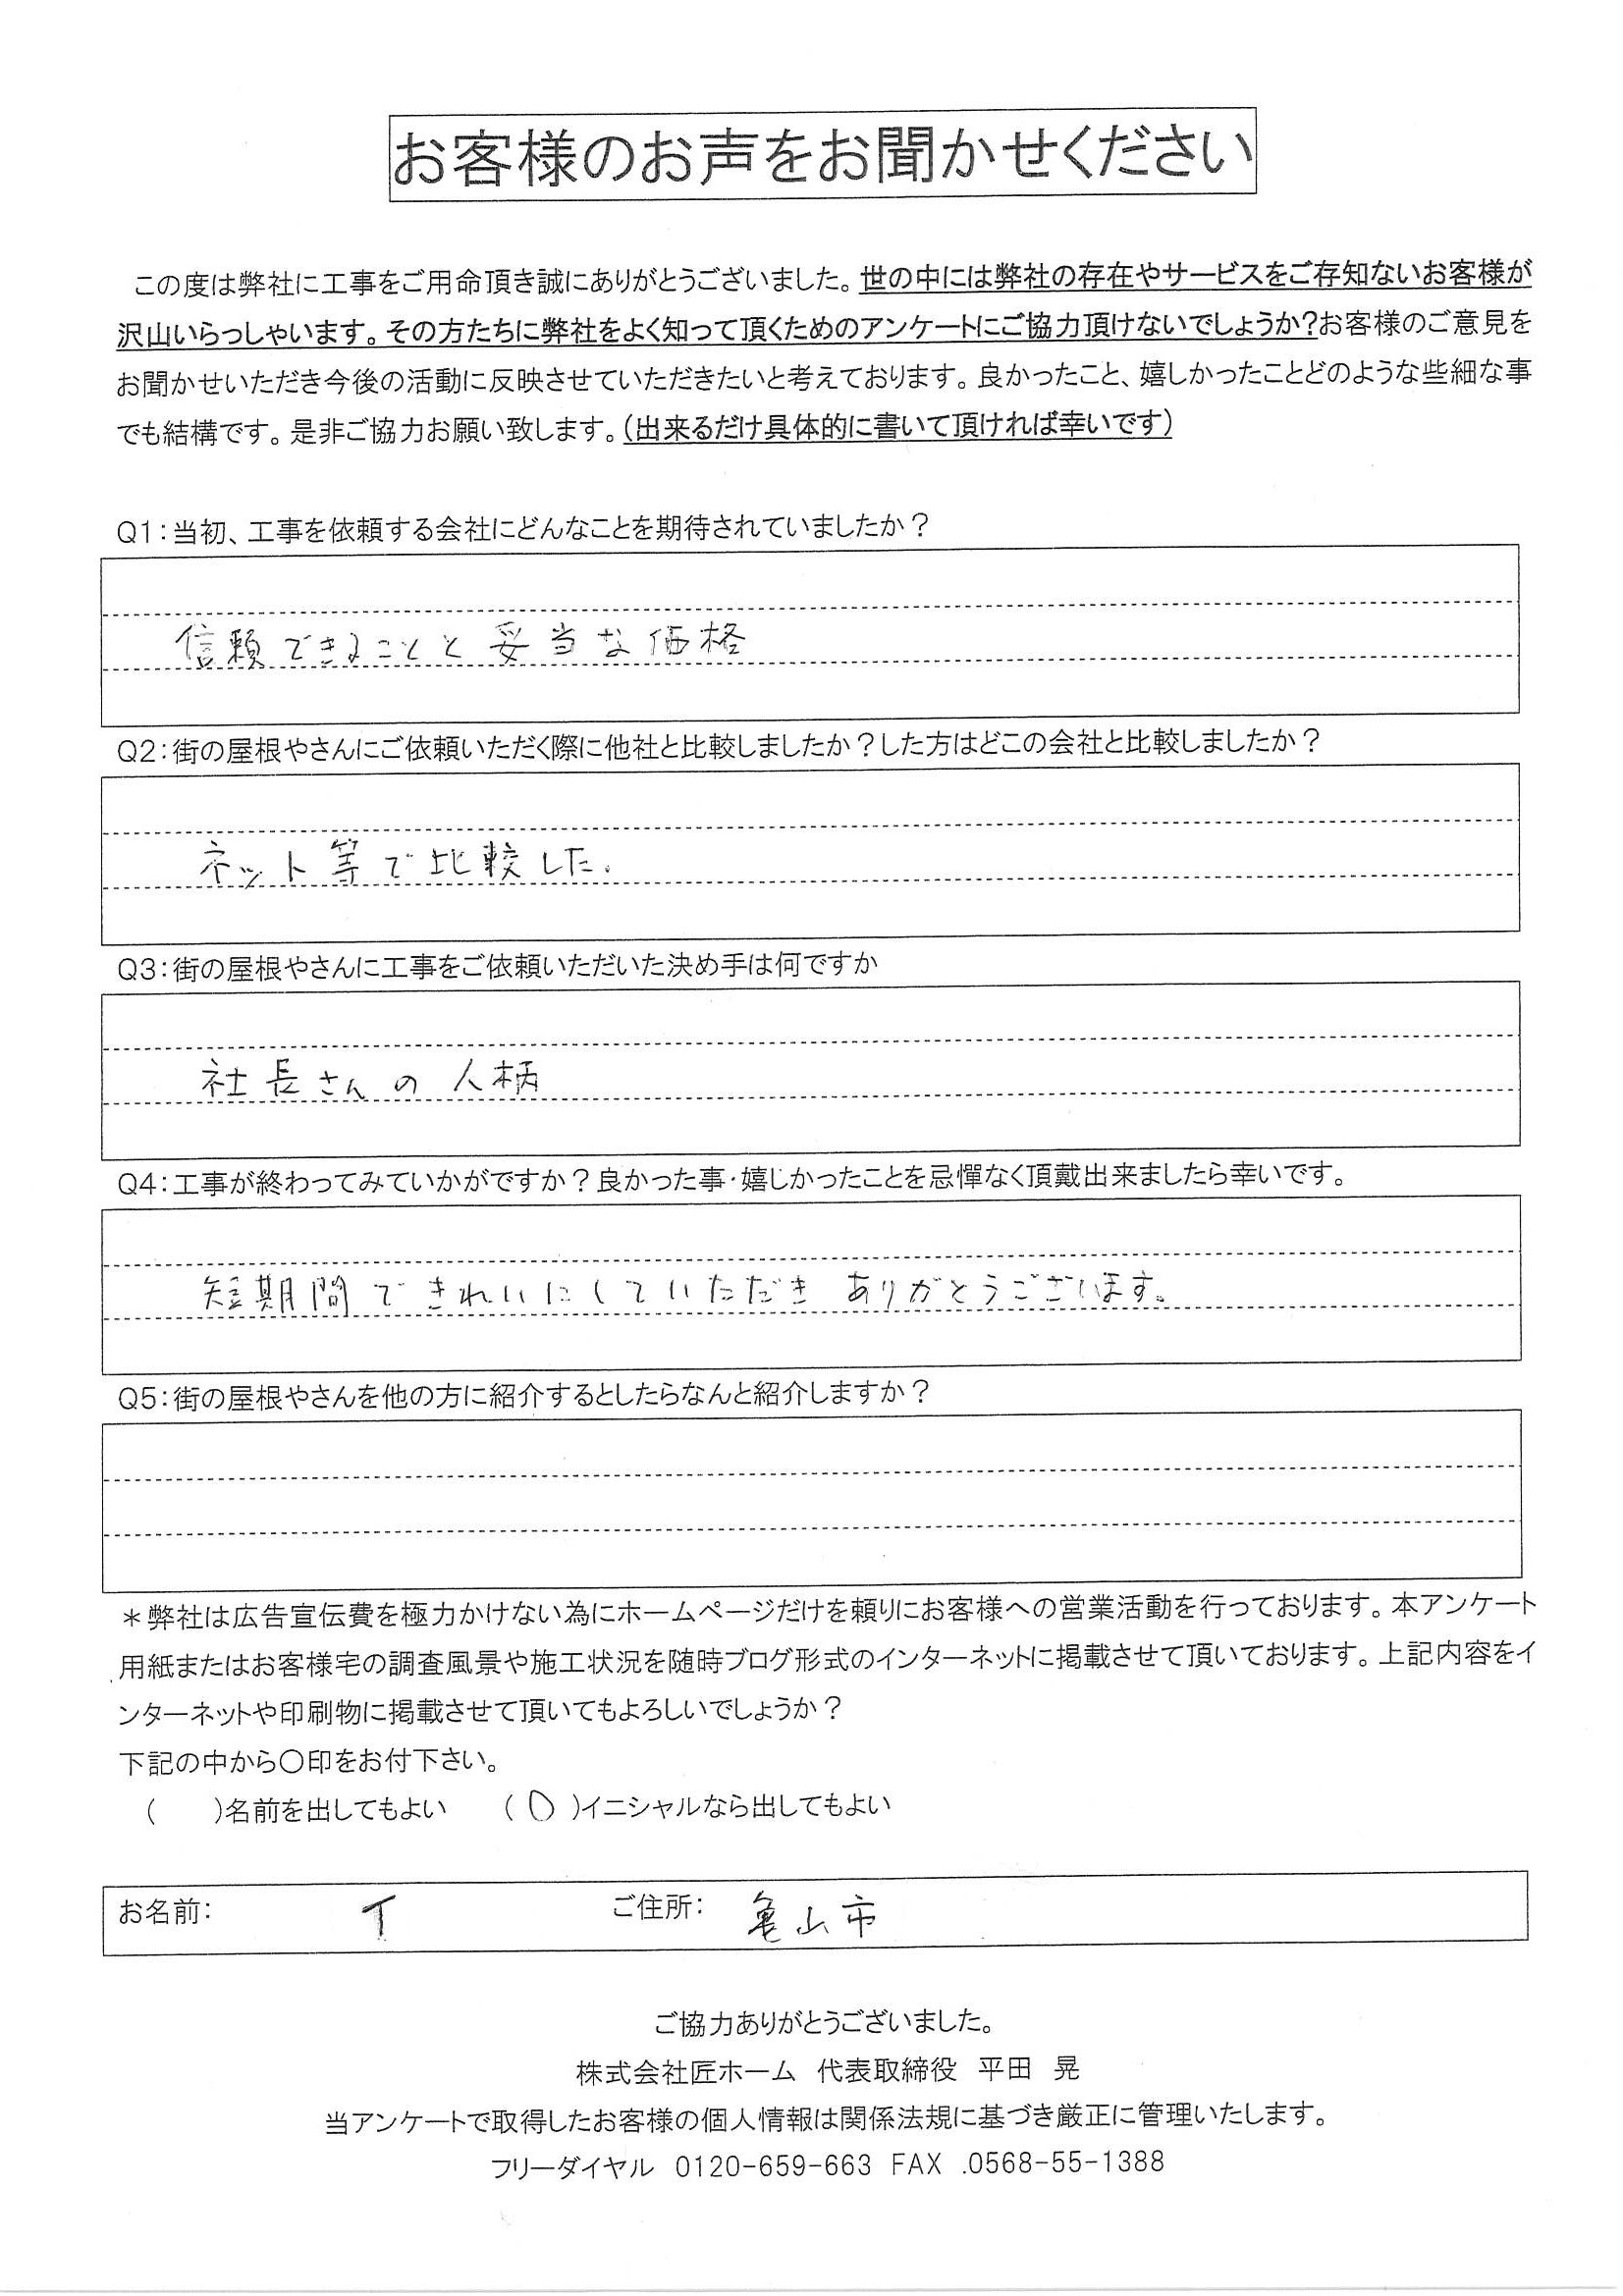 お客様のお声をお聞かせください
この度は弊社に工事をご用命頂き誠にありがとうございました。世の中には弊社の存在やサービスをご存知ないお客様が
沢山いらっしゃいます。その方たちに弊社をよく知って頂くためのアンケートにご協力頂けないでしょうか?お客様のご意見を
お聞かせいただき今後の活動に反映させていただきたいと考えております。良かったこと、嬉しかったことどのような些細な事
でも結構です。是非ご協力お願い致します。(出来るだけ具体的に書いて頂ければ幸いです)
Q1:当初、工事を依頼する会社にどんなことを期待されていましたか?
信頼できることと妥当な価格
Q2:街の屋根やさんにご依頼いただく際に他社と比較しましたか?した方はどこの会社と比較しましたか?
ネット等で比較した.
Q3:街の屋根やさんに工事をご依頼いただいた決め手は何ですか
社長さんの人柄
Q4:工事が終わってみていかがですか?良かった事・嬉しかったことを忌憚なく頂戴出来ましたら幸いです。
短期間できれいにしていただき ありがとうございます。
Q5:街の屋根やさんを他の方に紹介するとしたらなんと紹介しますか?
*弊社は広告宣伝費を極力かけない為にホームページだけを頼りにお客様への営業活動を行っております。本アンケート
用紙またはお客様宅の調査風景や施工状況を随時ブログ形式のインターネットに掲載させて頂いております。上記内容をイ
ンターネットや印刷物に掲載させて頂いてもよろしいでしょうか?
下記の中から〇印をお付下さい。
(　　)名前を出してもよい　　(〇)イニシャルなら出してもよい
お名前:　T　ご住所:　亀山市
ご協力ありがとうございました。
株式会社匠ホーム　代表取締役　平田　晃
当アンケートで取得したお客様の個人情報は関係法規に基づき厳正に管理いたします。
フリーダイヤル　0120-659-663　FAX .0568-55-1388